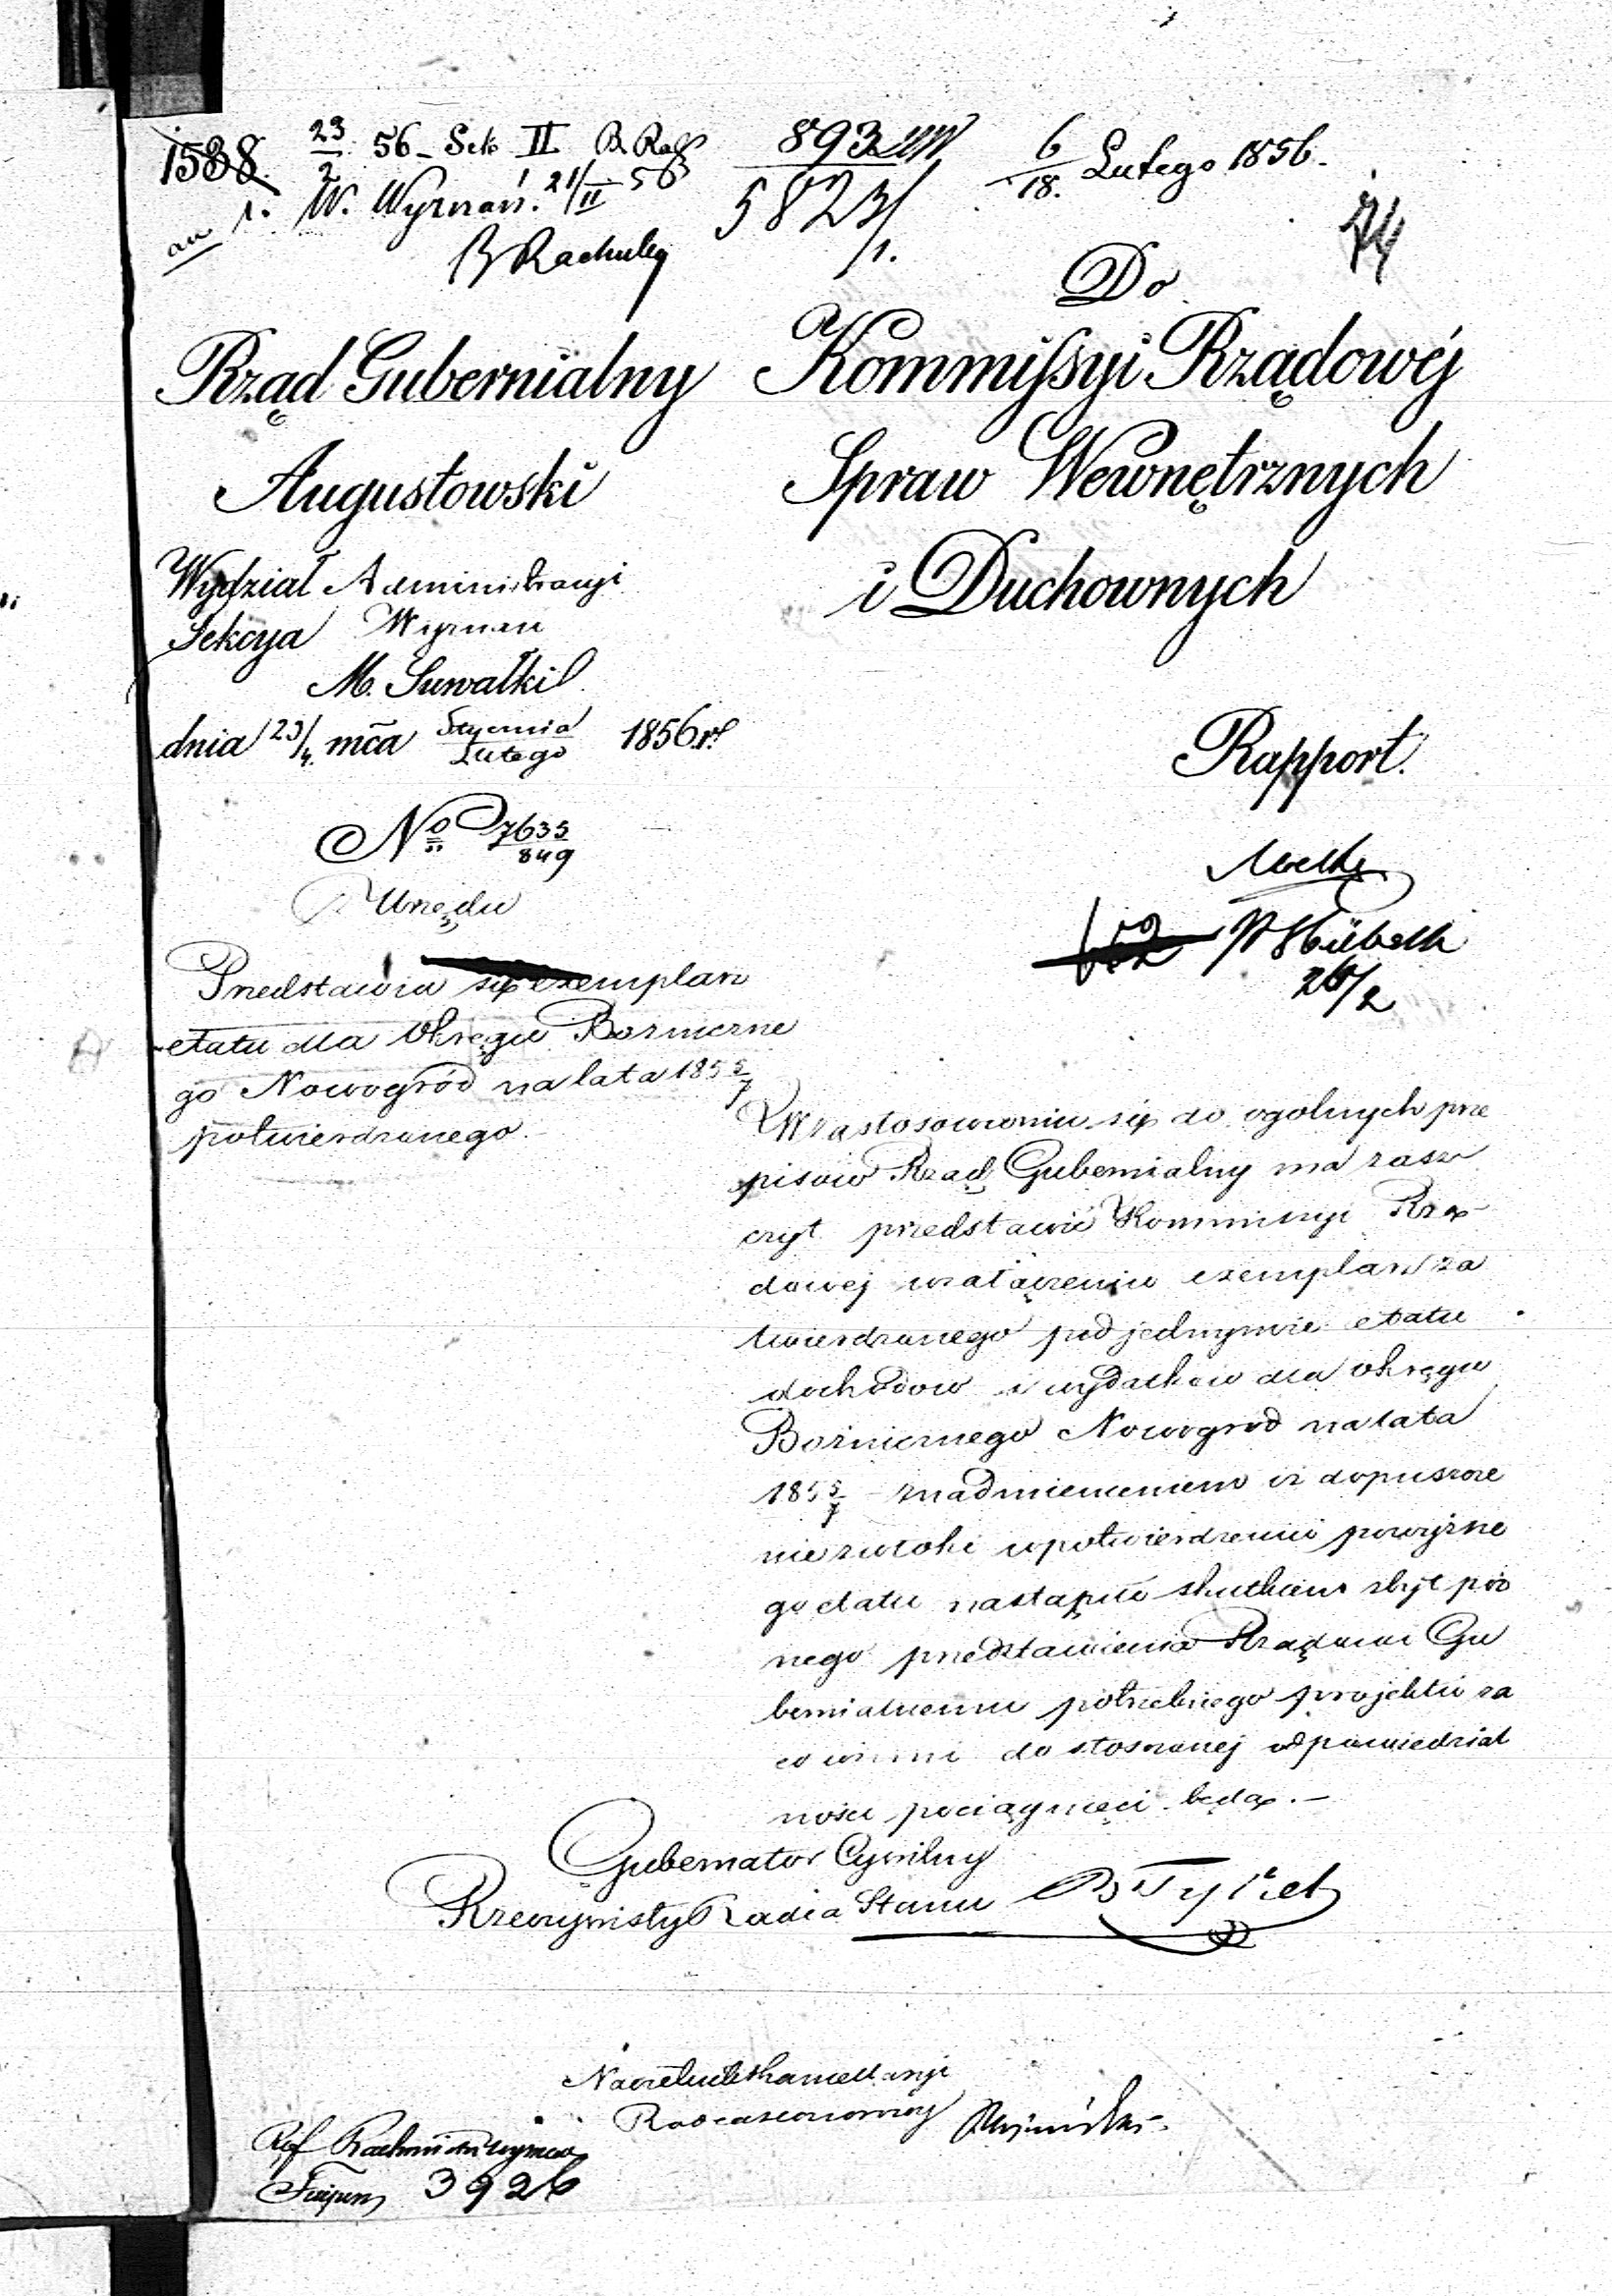 1588.
23/2 56 - Sek II
W. Wyznań. 21/II 56
893
5823/1.
6/18. Lutego 1856.
Do
Rząd Gubernialny
Augustowski
Kommissyi Rządowéj
Spraw Wewnętrznych
i Duchownych
Wydział Administracyi
Sekcya Wyznań
M. Suwałki
dnia 23/4. mca Stycznia/Lutego 1856 r.
No 7635/849
Z Urzędu
Rapport.
Przedstawia exemplarz
etatu dla Okręgu Bożniczne
go Nowogród na lata 1855/7
potwierdzonego.
26/2
W zastosowaniu się do ogolnych prze
pisów Rząd Gubernialny ma zasz
czyt przedstawić Kommissyi Rzą-
dowej w załączeniu exemplarz za
twierdzonego pod jednymże etatu
dochodów i wydatków dla okręgu
Bożnicznego Nowogród na lata
1855/7 z nadmienieniem iż dopuszcze
nie zwłoki w potwierdzeniu powyższe
go etatu nastąpiło skutkiem zbyt póź
nego przedstawienia Rządowi Gu
bernialnemu potrzebnego projektu za
co winni do stosownej odpowiedzial
ności pociągnięci będą. -
Gubernator Cywilny
Rzeczywisty Radca Stanu
Naczelnik Kancellaryi
Radca Honorowy
3926